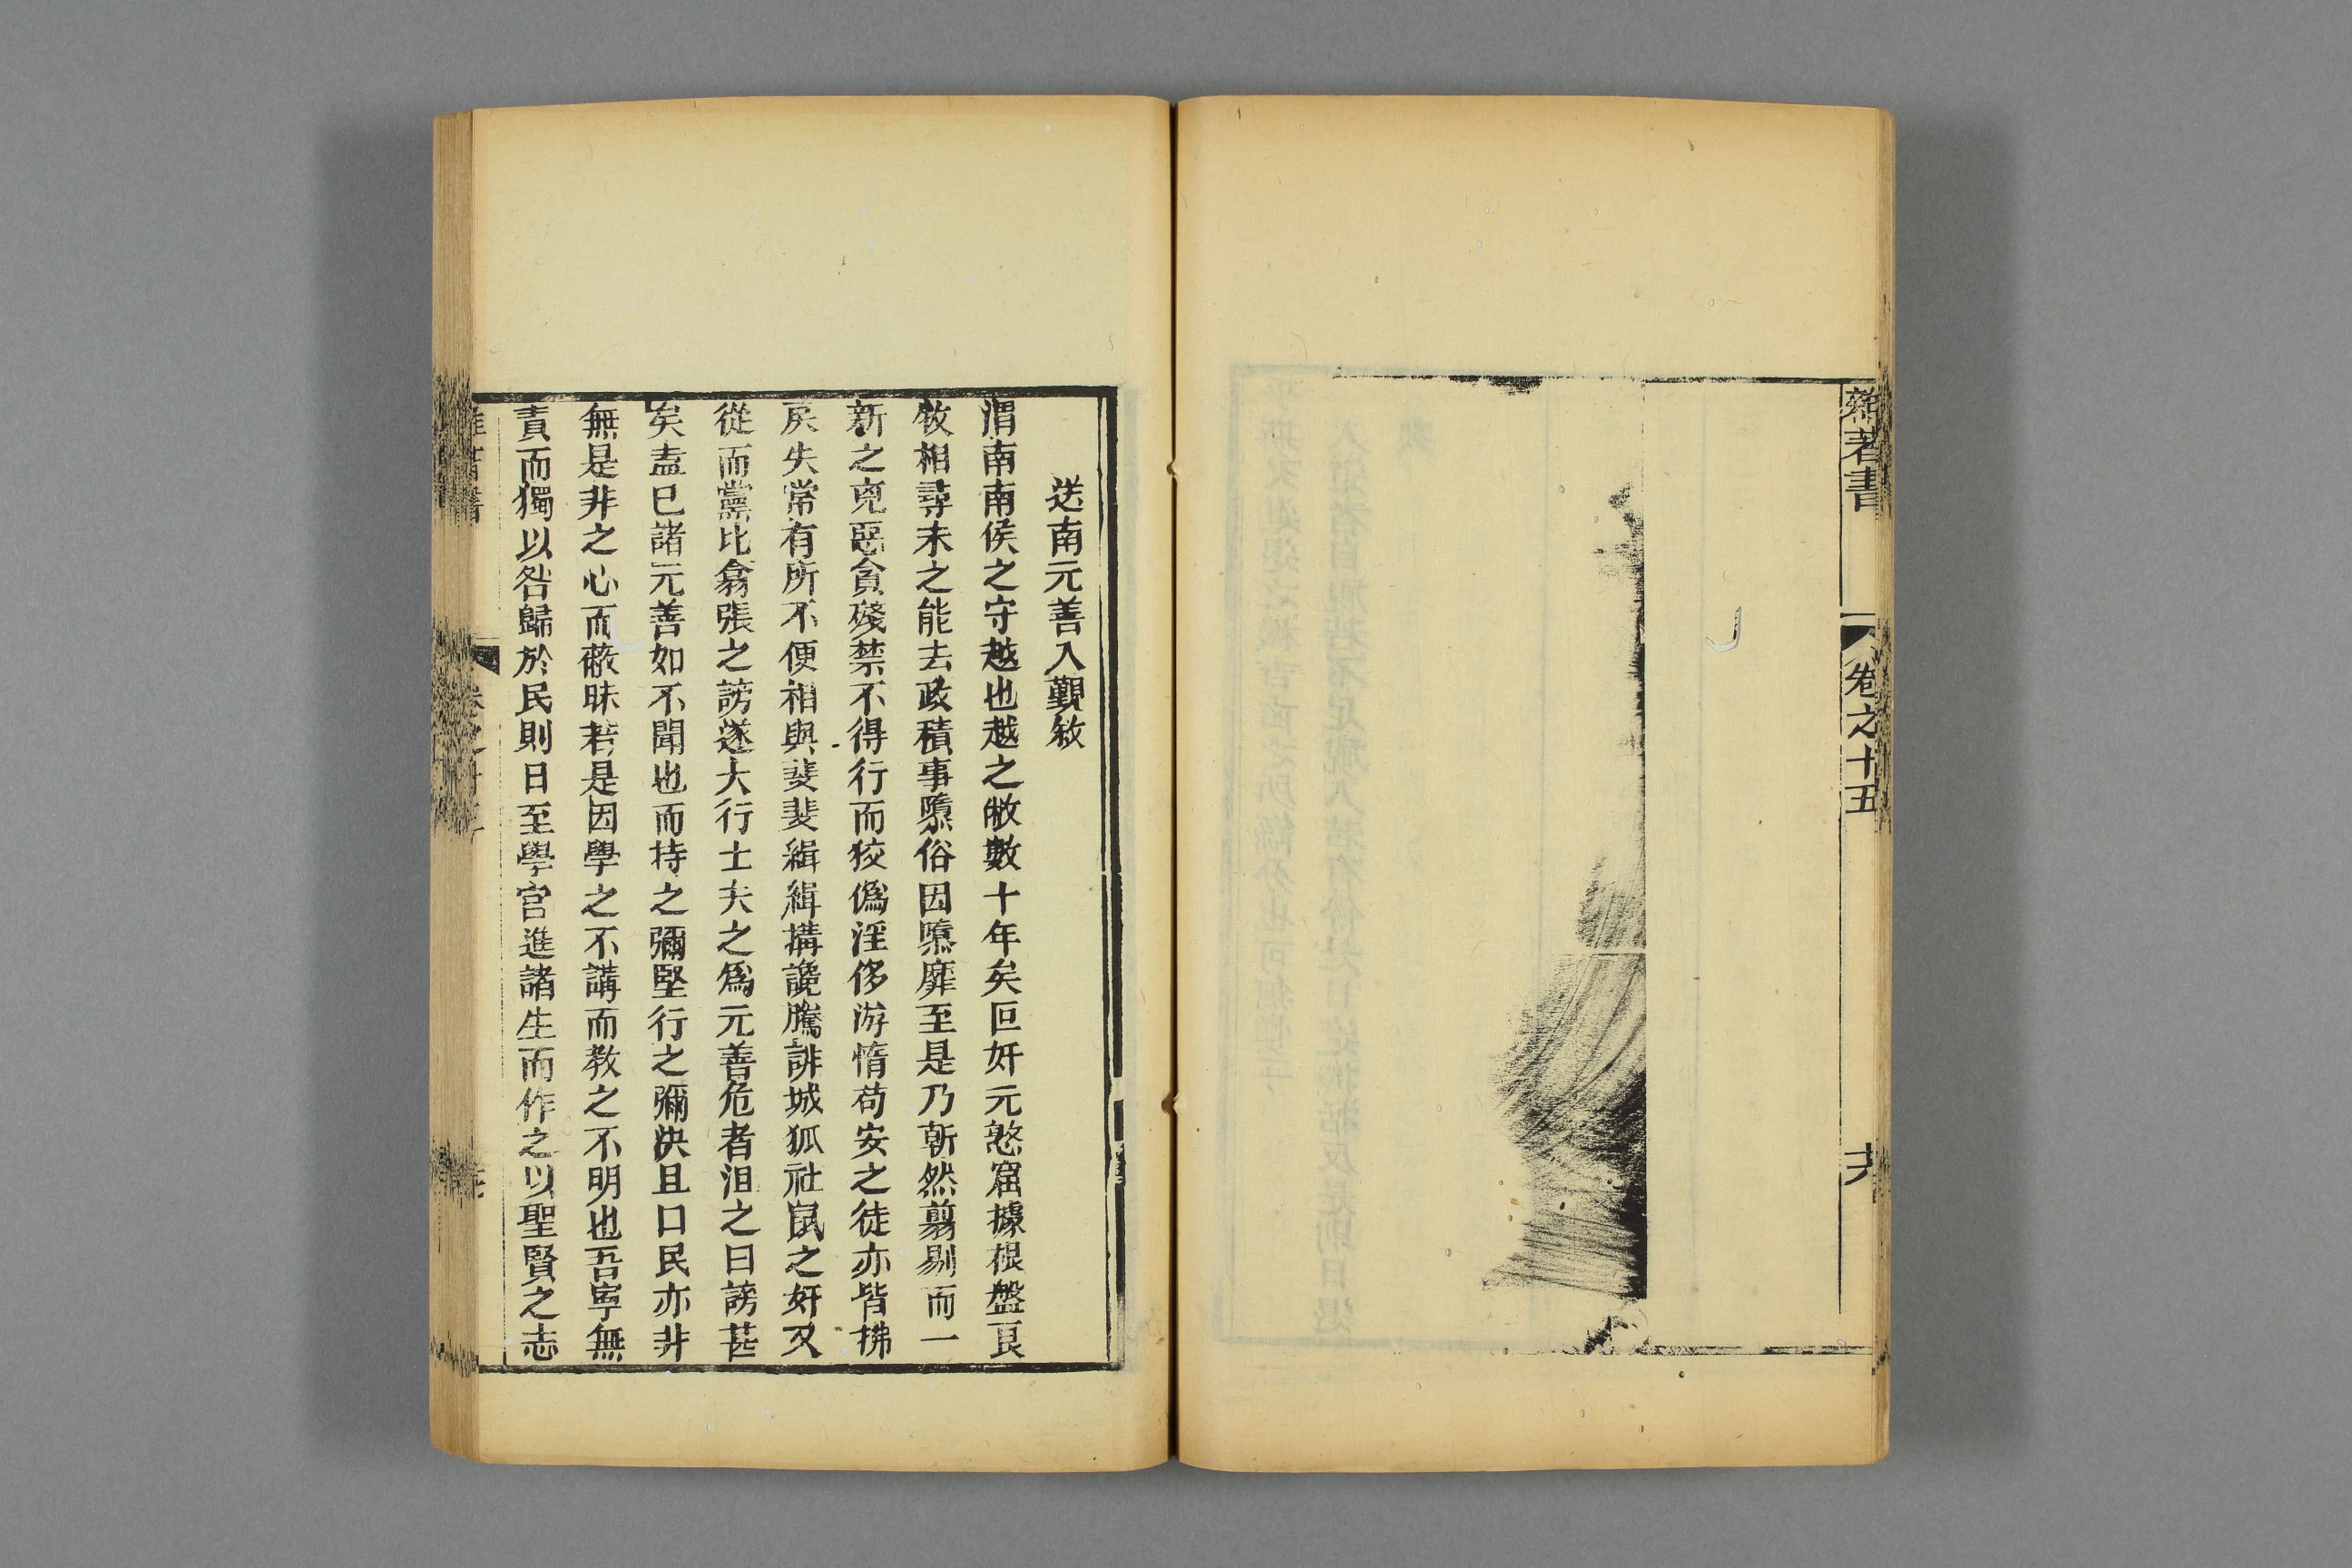 雜著書
卷之十五
送南元善入覲敘
渭南南侯之守越也越之敝數十年矣巨奸元憝窟據根盤良
牧相尋未之能去政積事隳俗因隳靡至是乃斬然翦剔而一
新之兇惡貪殘禁不得行而狡僞淫侈游惰苟安之徒亦皆拂
戾失常有所不便相與斐斐緝緝搆讒騰誹城狐社鼠之奸又
從而黨比翕張之謗遂大行士夫之爲元善危者沮之曰謗甚
矣盍已諸元善如不聞也而持之彌堅行之彌決且曰民亦非
無是非之心而蔽昧若是固學之不講而教之不明也吾寧無
責而獨以咎歸於民則日至學宫進諸生而作之以聖賢之志